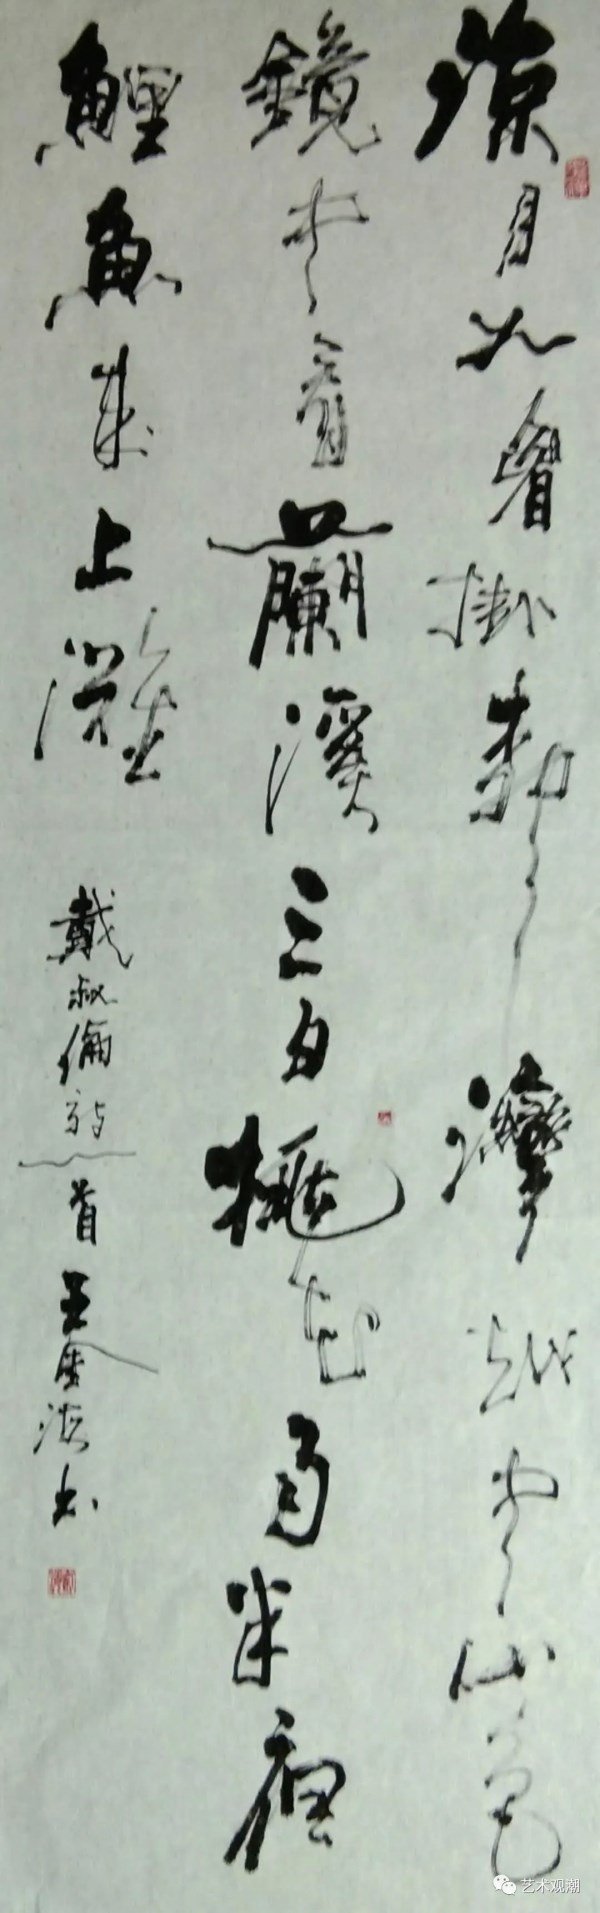 涼月如眉掛柳灣越中山色
鏡中看蘭溪三日桃花雨半夜
鯉魚来上灘
戴叔倫詩一首 王海书
艺术观潮